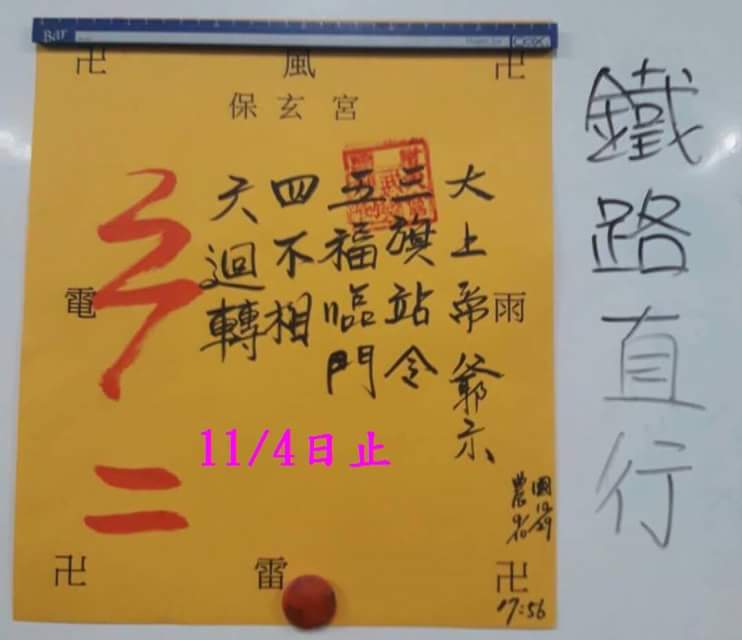 Bar
卍 風 卍
保玄宮
大上帝爺示
三旗站令
五福臨門
四不相
迴轉
電
雨
二
11/4日止
國10/29
農9/10
卍 雷 卍
17:56
鐵路直行